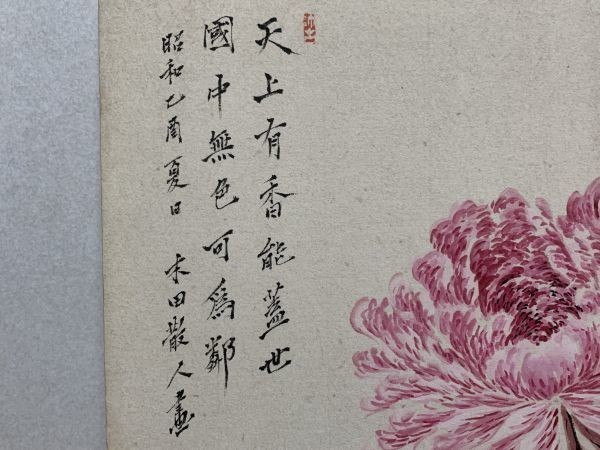 天上有香能蓋世
國中無色可為鄰
昭和乙酉夏日 木田散人畫